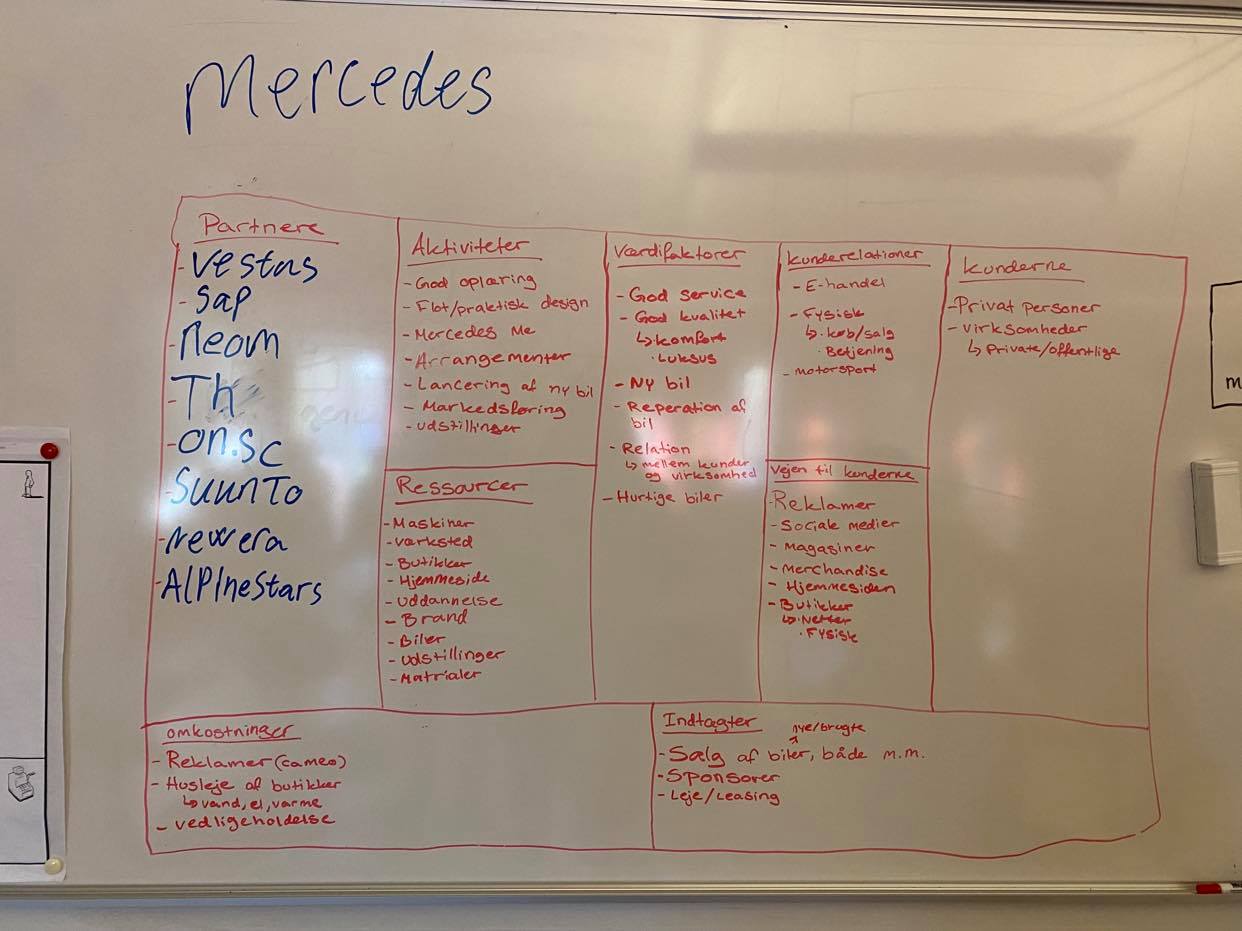 Mercedes
Partnere
- Vestas
- Sap
- Neom
- Th
- on.sc
- Suunto
- New era
- AlPineStars
Aktiviteter
- God oplæring
- Flot/praktisk design
- Mercedes Me
- Arrangementer
- Lancering af ny bil
- Markedsføring
- Udstillinger
Ressourcer
- Maskiner
- Værksted
- Butikker
- Hjemmeside
- Uddannelse
- Brand
- Biler
- Udstillinger
- Matrialer
Værdifaktorer
- God service
- God kvalitet
↳ · Komfort
· Luksus
- Ny bil
- Reperation af
bil
- Relation
↳ mellem kunder
og virksomhed
- Hurtige biler
Kunderelationer
- E-handel
- Fysisk
↳ · køb/salg
· Betjening
- motorsport
Vejen til kunderne
- Reklamer
- Sociale medier
- Magasiner
- Merchandise
- Hjemmesiden
- Butikker
↳ · Netter
· Fysisk
Kunderne
- Privat personer
- Virksomheder
↳ Private/offentlige
Omkostninger
- Reklamer (cameo)
- Husleje af butikker
↳ vand, el, varme
- Vedligeholdelse
Indtægter
nye/brugte
- Salg af biler, både m.m.
- Sponsorer
- Leje/Leasing
m